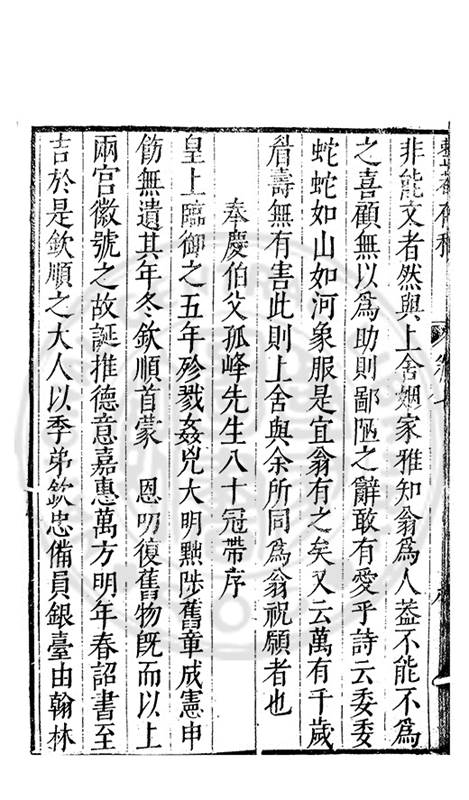 非能文者然與上舍姻家雅知翁為人葢不能不為
之喜顧無以爲助則鄙陋之辭敢有愛乎詩云委委
蛇蛇如山如河象服是宜翁有之矣又云萬有千歲
眉壽無有害此則上舍與余所同爲翁祝願者也
奉慶伯父孤峰先生八十冠帶序
皇上臨御之五年殄戮姦兇大明黜陟舊章成憲申
飭無遺其年冬欽順首蒙 恩叨復舊物旣而以上
兩宮徽號之故誕推德意嘉惠萬方明年春詔書至
吉於是欽順之大人以季弟欽忠備員銀臺由翰林